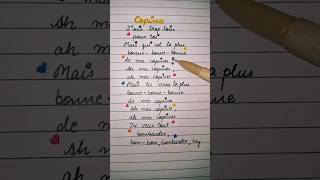 Copines
J'suis trop loin
pour toi
Mais qui est la plus
bonne-bonne-bonne
de mes copines
Ah mes copines
ah mes copines
Mais Tu veux la plus
bonne-bonne-bonne
de mes copines
Ah mes copines
ah mes copines
Tu veux tout
bombarder,
bom-bom, bombarder, hey